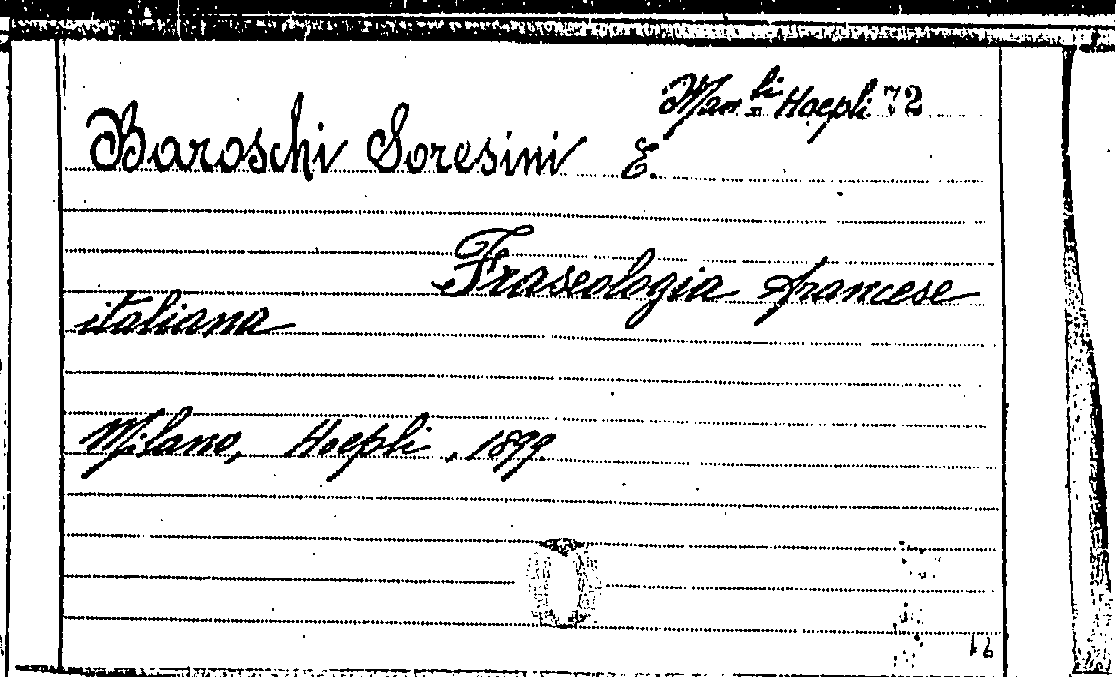 Man.li Hoepli 72
Baroschi Soresini E.
Fraseologia francese
italiana
Milano, Hoepli, 1899